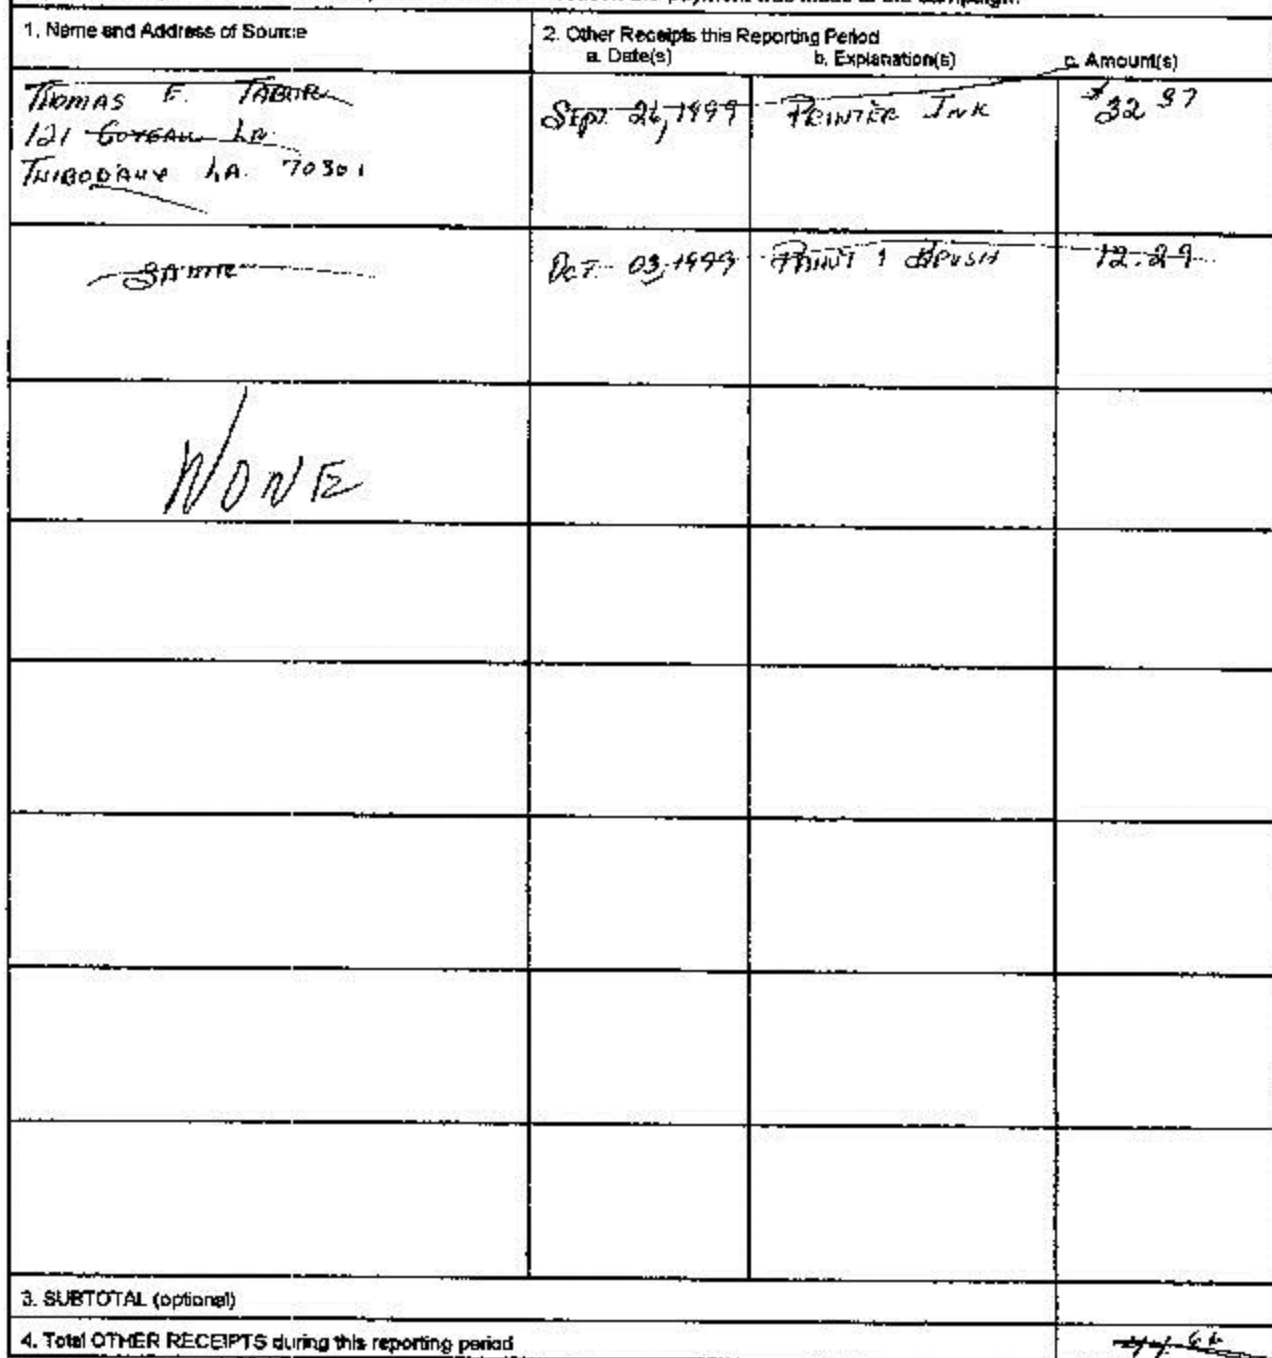 1. Name and Address of Source
2. Other Receipts this Reporting Period
a. Date(s) b. Explanation(s) c. Amount(s)
THOMAS F. TABOR
121 LN
THIBODAUX LA. 70301
SEPT 26, 1999 PRINTER INK $32 37
SAME
OCT. 03, 1999 PAINT & BRUSH 12.29
NONE
3. SUBTOTAL (optional)
4. Total OTHER RECEIPTS during this reporting period 44.66